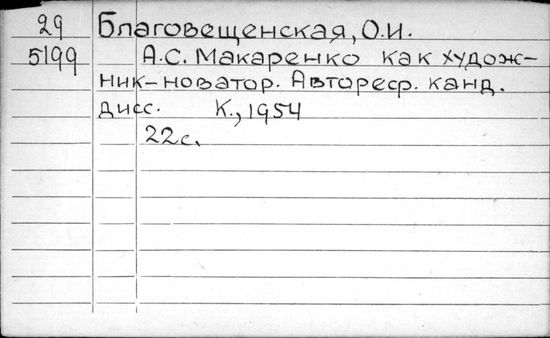 29 Благовещенская, О.И.
5199 А.С. Макаренко как худож-
ник-новатор. Автореф. канд.
дисс. К., 1954
22с.